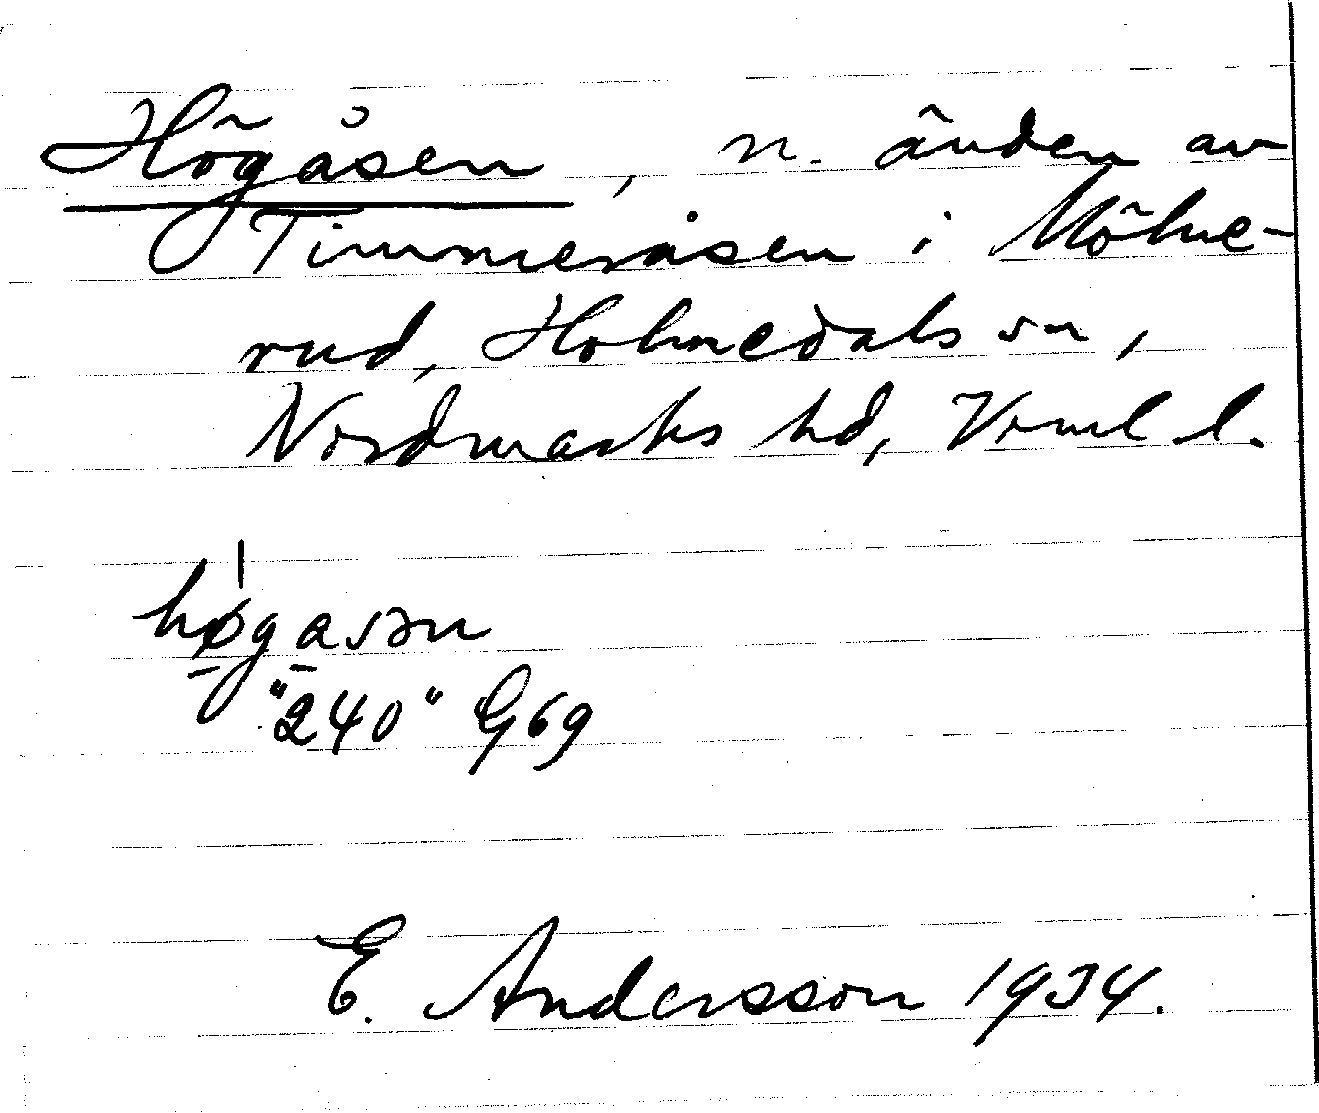 Högåsen, n. änden av
Timmeråsen i Mölne-
rud, Holmedals sn,
Nordmarks hd, Verml l.
høgasən
"240" G69
E. Andersson 1934.